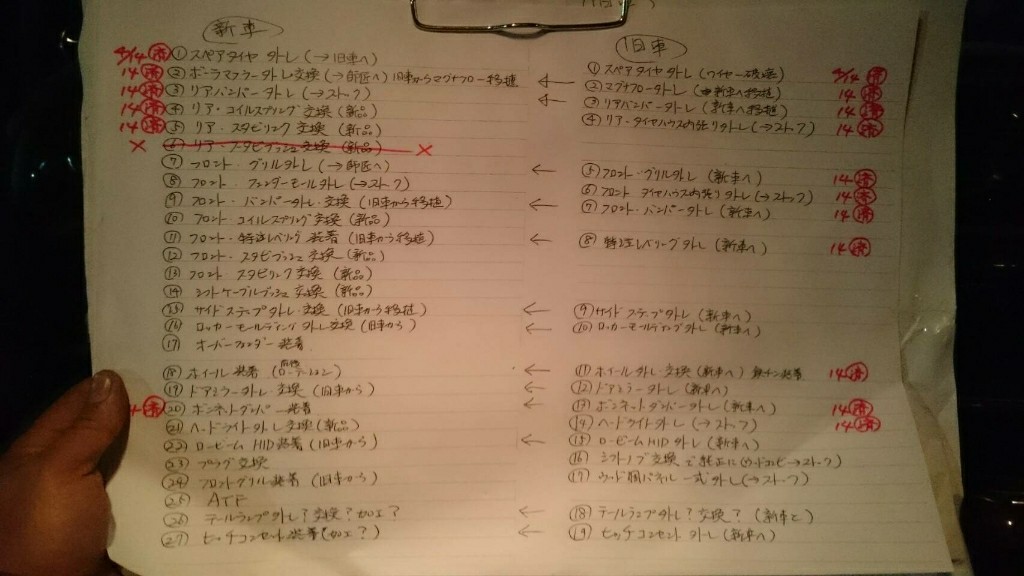 新車
4/14 済 ① スペアタイヤ外し (→旧車へ)
14 済 ② ボーラマフラー外し交換 (→師匠へ) 旧車からマグナフロー移植
14 済 ③ リアバンパー外し (→ストーフ)
14 済 ④ リア・コイルスプリング交換 (新品)
14 済 ⑤ リア・スタビリンク交換 (新品)
× ⑥ リア・スタビブッシュ交換 (新品) ×
⑦ フロント・グリル外し (→師匠へ)
⑧ フロント・フェンダーモール外し (→ストーフ)
⑨ フロント・バンパー外し・交換 (旧車から移植)
⑩ フロント・コイルスプリング交換 (新品)
⑪ フロント・特注レベリング装着 (旧車から移植)
⑫ フロント・スタビブッシュ交換 (新品)
⑬ フロント スタビリンク交換 (新品)
⑭ シフトケーブルブッシュ交換 (新品)
⑮ サイドステップ外し・交換 (旧車から移植)
⑯ ロッカーモールディング外し交換 (旧車から)
⑰ オーバーフェンダー装着
⑱ ホイール装着 (前後ローテーション)
⑲ ドアミラー外し・交換 (旧車から)
済 ⑳ ボンネットダンパー装着
㉑ ヘッドライト外し交換 (新品)
㉒ ロービームHID装着 (旧車から)
㉓ プラグ交換
㉔ フロントグリル装着 (旧車から)
㉕ ATF
㉖ テールランプ外し?交換?加工?
㉗ ヒッチコンセント装着 (加工?)
旧車
① スペアタイヤ外し (ワイヤー破壊) 4/14 済
← ② マグナフロー外し (新車へ移植) 14 済
← ③ リアバンパー外し (新車へ移植) 14 済
④ リア・タイヤハウス内張り外し (→ストーフ) 14 済
← ⑤ フロント・グリル外し (新車へ) 14 済
⑥ フロント タイヤハウス内張り外し (→ストーフ) 14 済
← ⑦ フロント・バンパー外し (新車へ) 14 済
← ⑧ 特注レベリング外し (新車へ) 14 済
← ⑨ サイドステップ外し (新車へ)
← ⑩ ロッカーモールディング外し (新車へ)
← ⑪ ホイール外し・交換 (新車へ) 鉄チン装着 14 済
← ⑫ ドアミラー外し (新車へ)
← ⑬ ボンネットダンパー外し (新車へ) 14 済
⑭ ヘッドライト外し (→ストーフ) 14 済
← ⑮ ロービームHID外し (新車へ)
⑯ シフトノブ交換で純正に (ウッドコンビ→ストーフ)
⑰ ウッド調パネル一式外し (→ストーフ)
← ⑱ テールランプ外し?交換? (新車と)
← ⑲ ヒッチコンセント外し (新車へ)